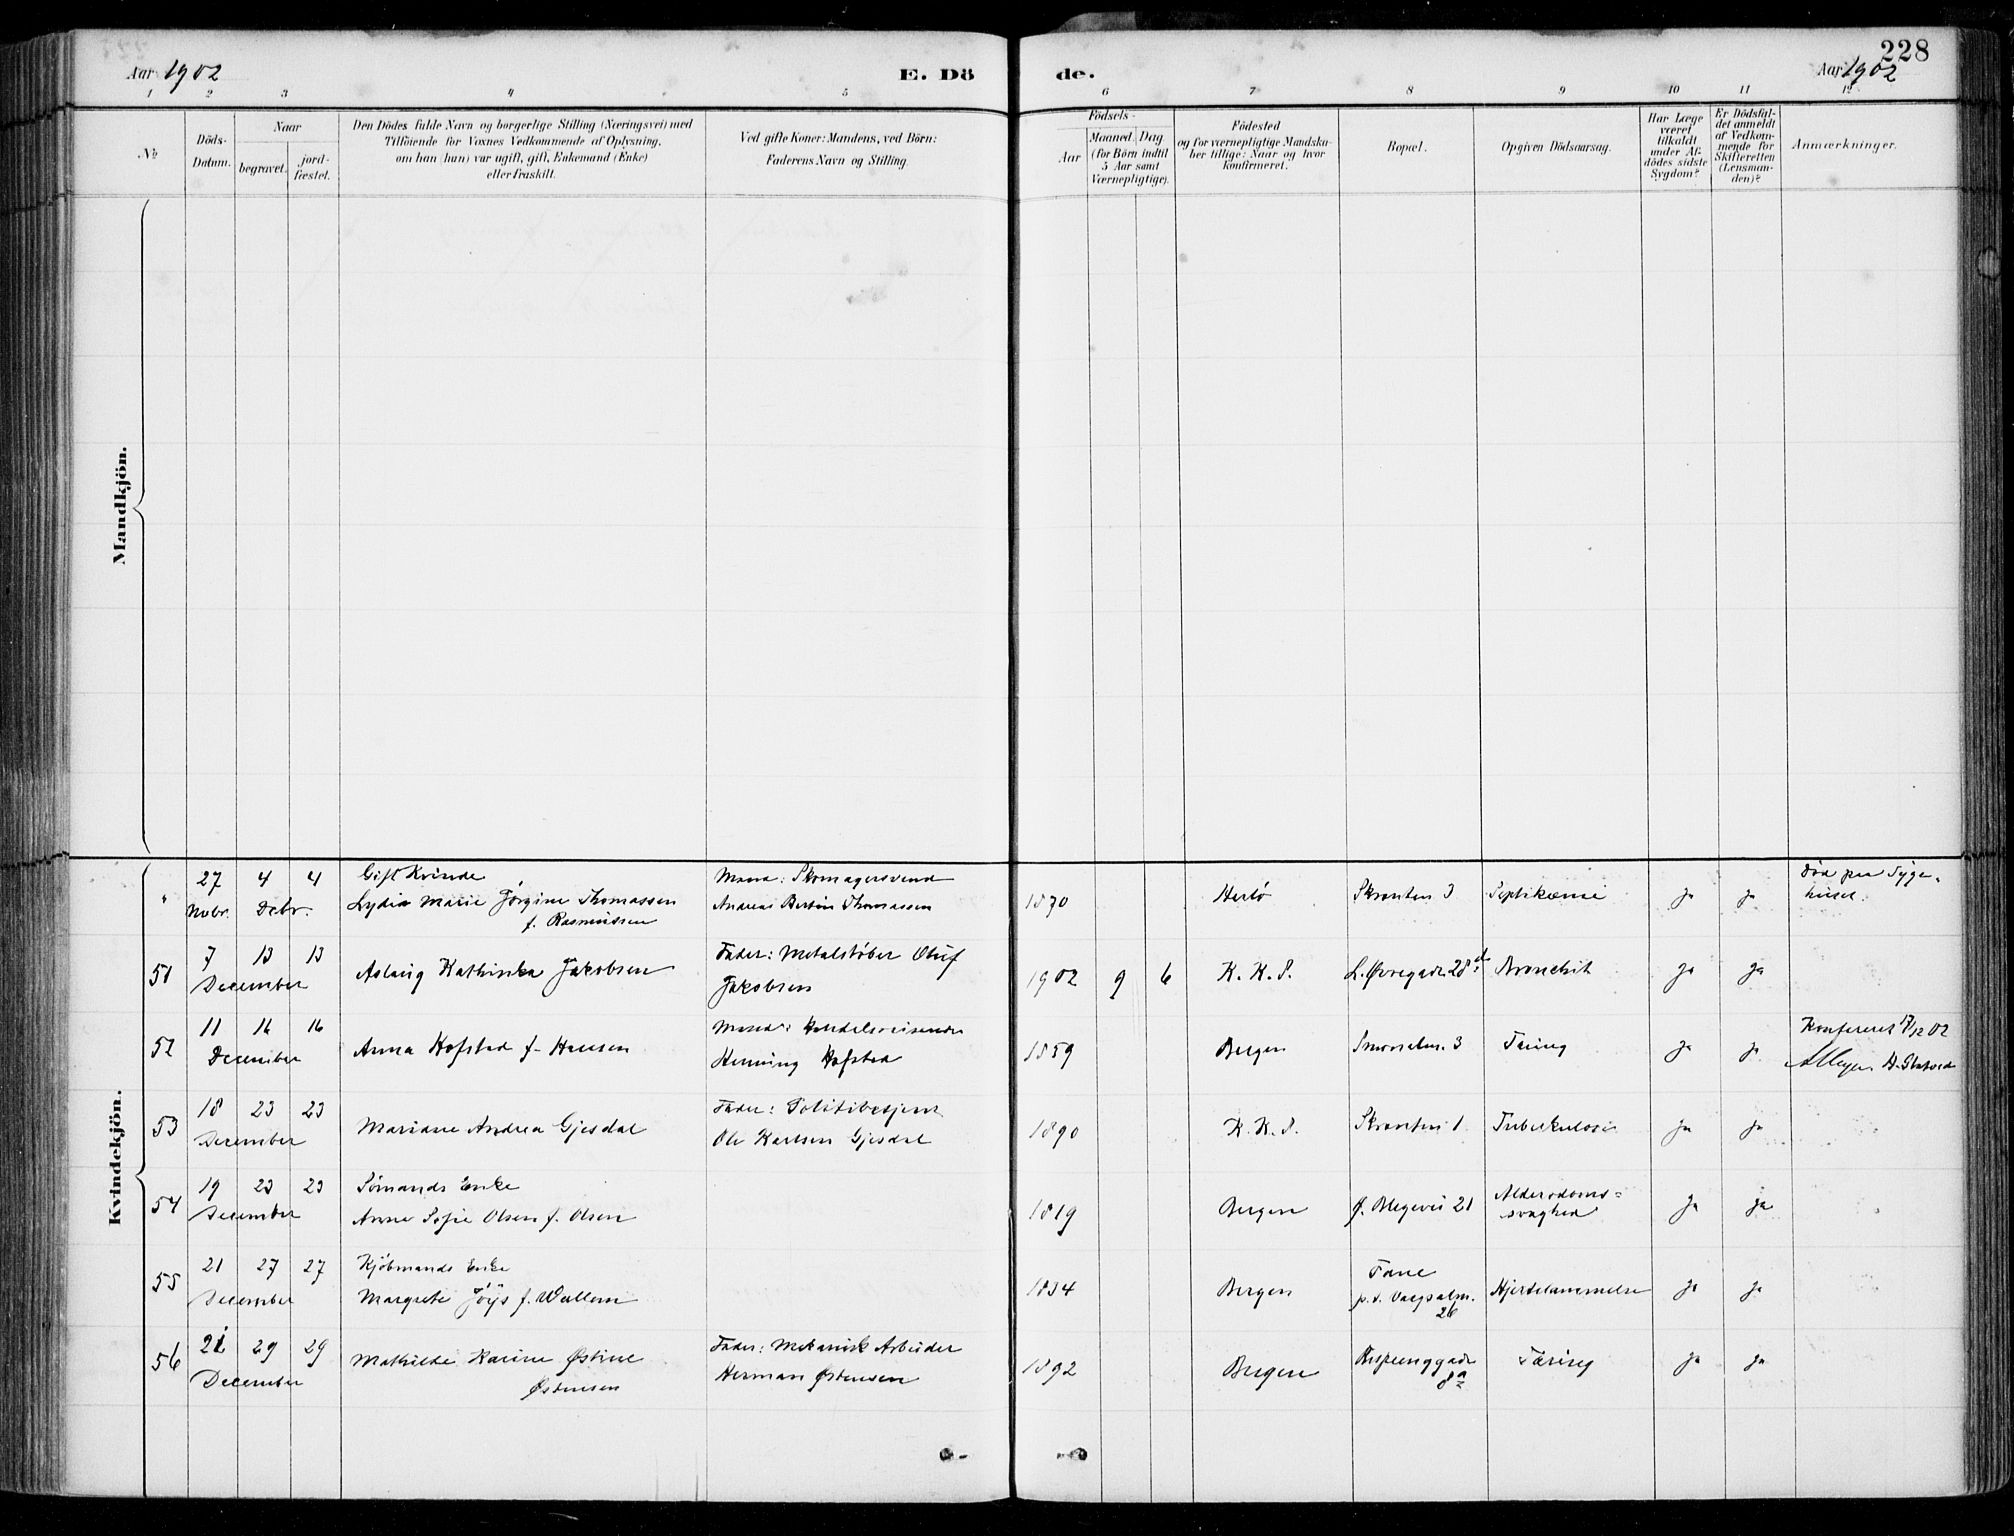 228
Aar 1902
E. Dö
de.
Aar 1902
1 2 3 4 5 6 7 8 9 10 11 12
№
Döds-
Datum.
Naar
begravet.
jord-
fæstet.
Den Dödes fulde Navn og borgerlige Stilling (Næringsvei) med
Tilföiende for Voxnes Vedkommende af Oplysning,
om han (hun) var ugift, gift, Enkemand (Enke)
eller fraskilt.
Ved gifte Koner: Mandens, ved Börn:
Faderens Navn og Stilling.
Födsels-
Aar
Maaned.
Dag.
(for Börn indtil
5 Aar samt
Værnepligtige).
Födested
og for værnepligtige Mandska-
ber tillige: Naar og hvor
konfirmeret.
Bopæl.
Opgiven Dödsaarsag.
Har Læge
været
tilkaldt
under Af-
dödes sidste
Sygdom?
Er Dödsfal-
det anmeldt
af Vedkom-
mende for
Skifteretten
(Lensman-
den)?
Anmærkninger.
Mandkjön.
Kvindekjön.
" 27 Novbr. 4 4 Debr.
Gift Kvinde
Lydia Marie Jörgine Thomassen
f. Rasmussen
Mand: Skomagersvend
Andreas Bertin Thomassen
1870 Herlö Skransten 3 Septikæmi ja ja
Död paa Syge-
huset.
51 7 13 13 December
Aslaug Kathinka Jakobsen
Fader: Metalstöber Oluf
Jakobsen
1902 9 6 K. K. S. L. Øvregade 28 Bronchit ja ja
52 11 16 16 December
Anna Hofstad f. Hansen
Mand: Handelsreisende
Henning Hofstad
1859 Bergen 3 Tæring ja ja
Konfereret 17/12 02
53 18 23 23 December
Mariane Andrea Gjesdal
Fader: Politibetjent
Ole Karlsen Gjesdal
1890 K. K. S. Skransten 1 Tuberkulose ja ja
54 19 23 23 December
Sömands Enke
Anne Sofie Olsen f. Olsen
1819 Bergen Ø. Blegevei 21
Alderdoms-
svaghed
ja ja
55 21 27 27 December
Kjöbmands Enke
Margrete Jöys f. Wallem
1834 Bergen
Fane
26
Hjertelammelse ja ja
56 21 29 29 December
Mathilde Karine Østine
Østensen
Fader: Mekanisk Arbeider
Herman Østensen
1892 Bergen
8a
Tæring ja ja